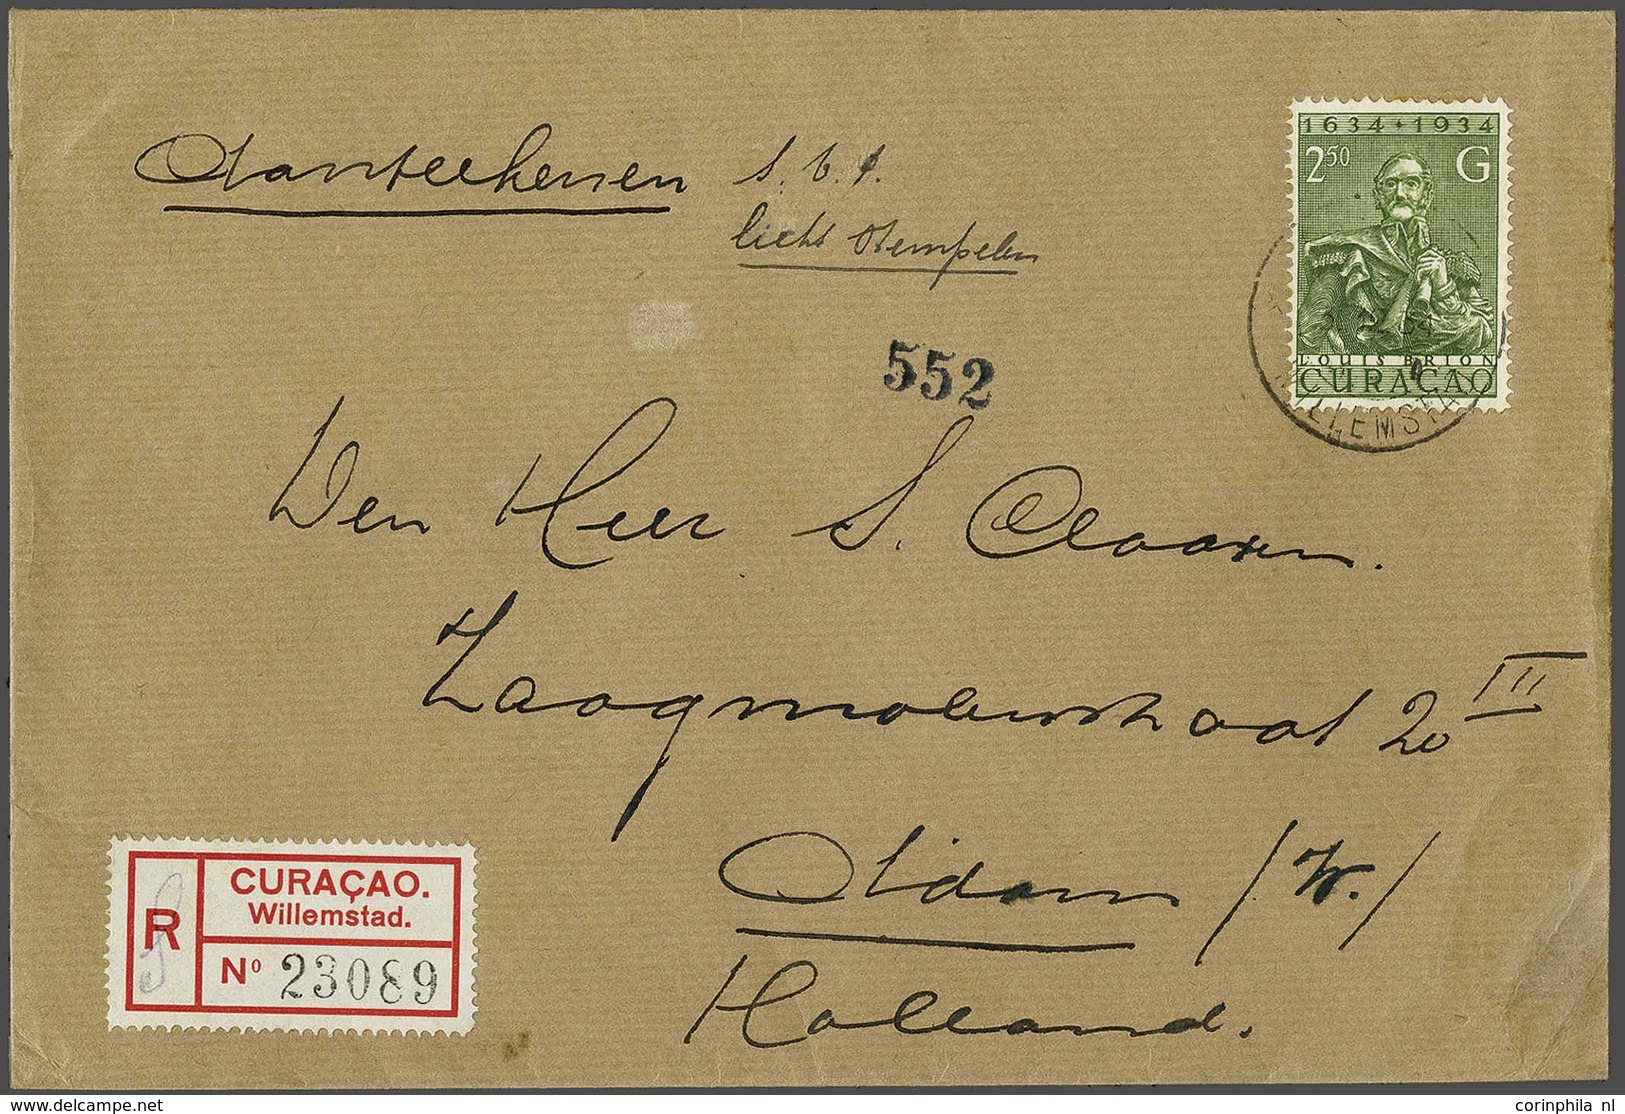 Aanteekenen s.v.p.
licht stempelen
1634 + 1934
2 50 G
LOUIS BRION
CURAÇAO
WILLEMSTAD
552
Den Heer S. Claasen.
Zaagmolenstraat 20 III
A'dam /W./
Holland.
R
CURAÇAO.
Willemstad.
Nº 23089
delcampe.net
corinphila nl